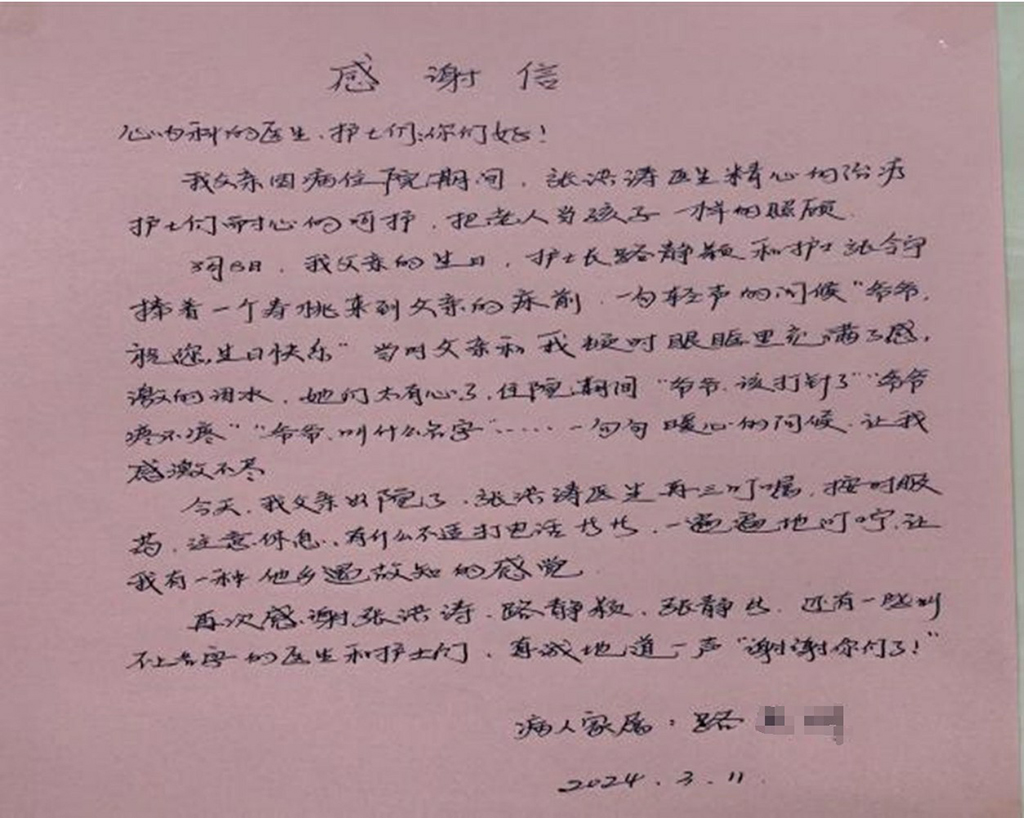 感谢信
心内科的医生、护士们:你们好!
我父亲因病住院期间,张洪涛医生精心的治疗
护士们耐心的呵护,把老人当孩子一样的照顾.
3月8日,我父亲的生日,护士长路静颖和护士张令宇
捧着一个寿桃来到父亲的床前.一句轻声的问候“爷爷,
祝您生日快乐”当时父亲和我顿时眼眶里充满了感
激的泪水.她们太有心了,住院期间“爷爷,该打针了”“爷爷
疼不疼”“爷爷,叫什么名字”……一句句暖心的问候.让我
感激不尽
今天,我父亲好院了,张洪涛医生再三叮嘱,按时服
药,注意休息,有什么不适打电话 一遍遍地叮咛,让
我有一种他乡遇故知的感觉.
再次感谢张洪涛.路静颖.张静 还有一些叫
不上名字的医生和护士们,真诚地道一声“谢谢你们了!”
病人家属:路
2024.3.11.